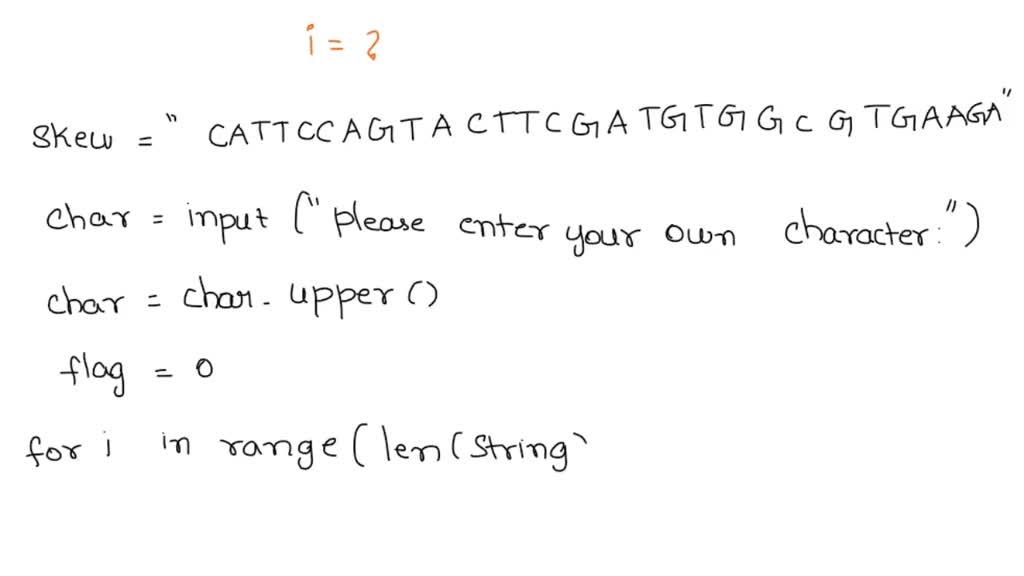 i = ?
Skew = " CATTCCAGTACTTCGATGTGGCGTGAAGA"
char = input ("please enter your own character:")
char = char. upper()
flag = 0
for i in range (len(String)